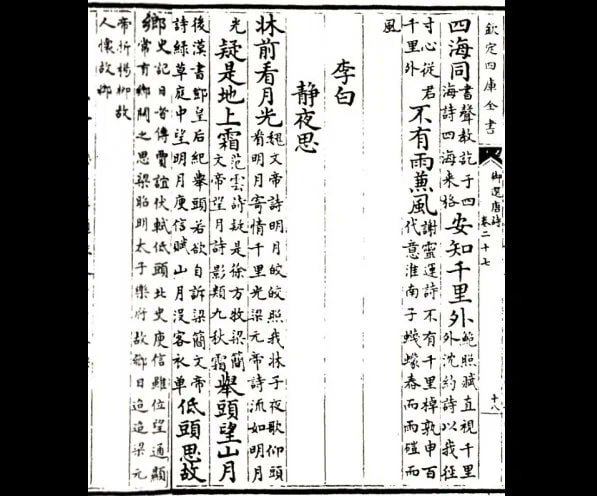 欽定四庫全書
御選唐詩
卷二十七
十八
四海同書聲教訖于四海詩四海來格安知千里外鮑照賦直視千里外沈約詩以我徑
寸心從君千里外不有雨兼風謝靈運詩不有千里棹孰申百代意淮南子蠛蠓舂而雨磑而
風
李白
靜夜思
牀前看月光魏文帝詩明月皎皎照我牀子夜歌仰頭看明月寄情千里光梁元帝詩流如明月
光疑是地上霜范雲詩疑是徐方牧梁簡文帝望月詩影類九秋霜舉頭望山月
後漢書鄧皇后紀舉頭若欲自訴梁簡文帝詩綠草庭中望明月庾信賦山月沒客衣單低頭思故
鄉史記日者傳賈誼伏軾低頭北史庾信雖位望通顯常有鄉關之思梁昭明太子樂府故鄉日迢迢梁元
帝折楊柳故人懷故鄉